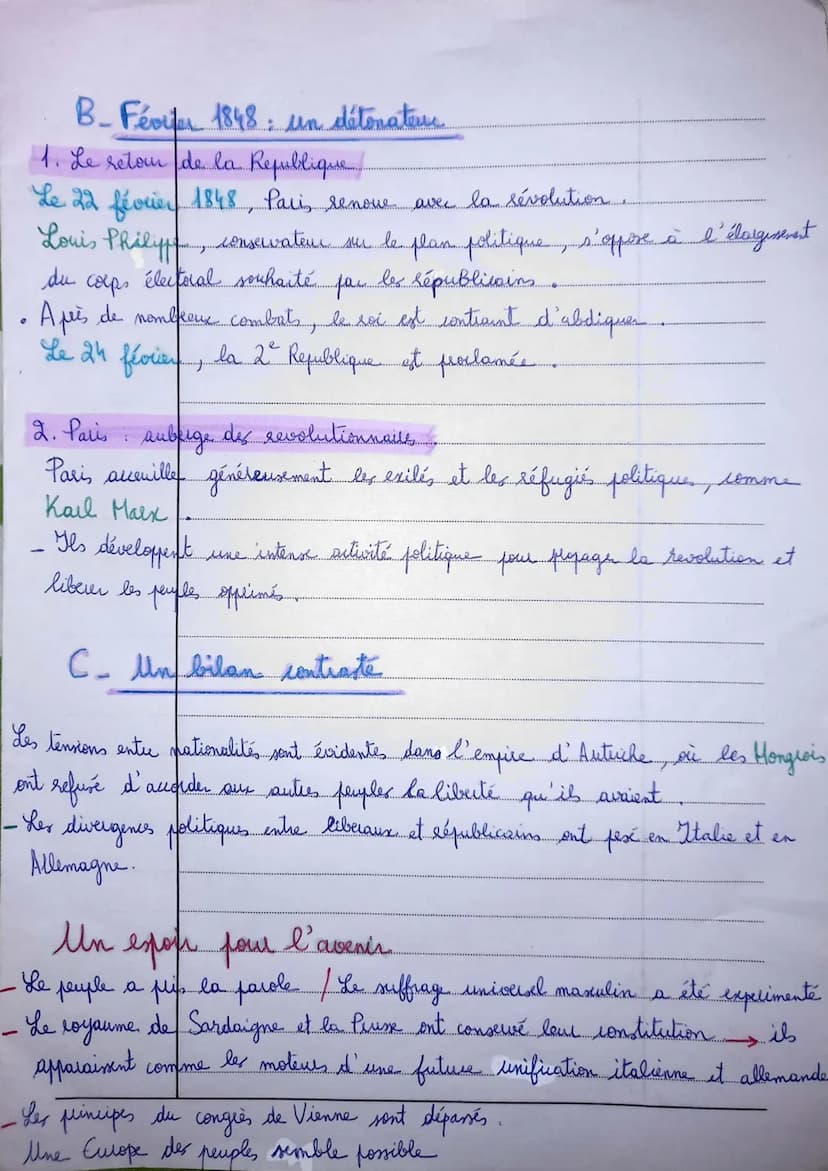 B- Février 1848 : un détonateur
1. Le retour de la Republique
Le 22 février 1848, Paris renoue avec la révolution.
Louis Philippe, conservateur sur le plan politique, s'oppose à l'élargissement
du corps électoral souhaité par les républicains.
• Après de nombreux combats, le roi est contraint d'abdiquer.
Le 24 février, la 2e Republique est proclamée.
2. Paris : auberge des revolutionnaires.
Paris accueille généreusement les exilés et les réfugiés politiques, comme
Karl Marx.
- Ils développent une intense activité politique pour propager la revolution et
liberer les peuples opprimés.
C- Un bilan contrasté
Les tensions entre nationalités sont évidentes dans l'empire d'Autriche, où les Hongrois
ont refusé d'accorder aux autres peuples la liberté qu'ils avaient.
- Les divergences politiques entre liberaux et républicains ont pesé en Italie et en
Allemagne.
Un espoir pour l'avenir
- Le peuple a pris la parole / Le suffrage universel masculin a été experimenté
- Le royaume de Sardaigne et la Prusse ont conservé leur constitution → ils
apparaissent comme les moteurs d'une future unification italienne et allemande
- Les principes du congrès de Vienne sont dépassés.
Une Europe des peuples semble possible